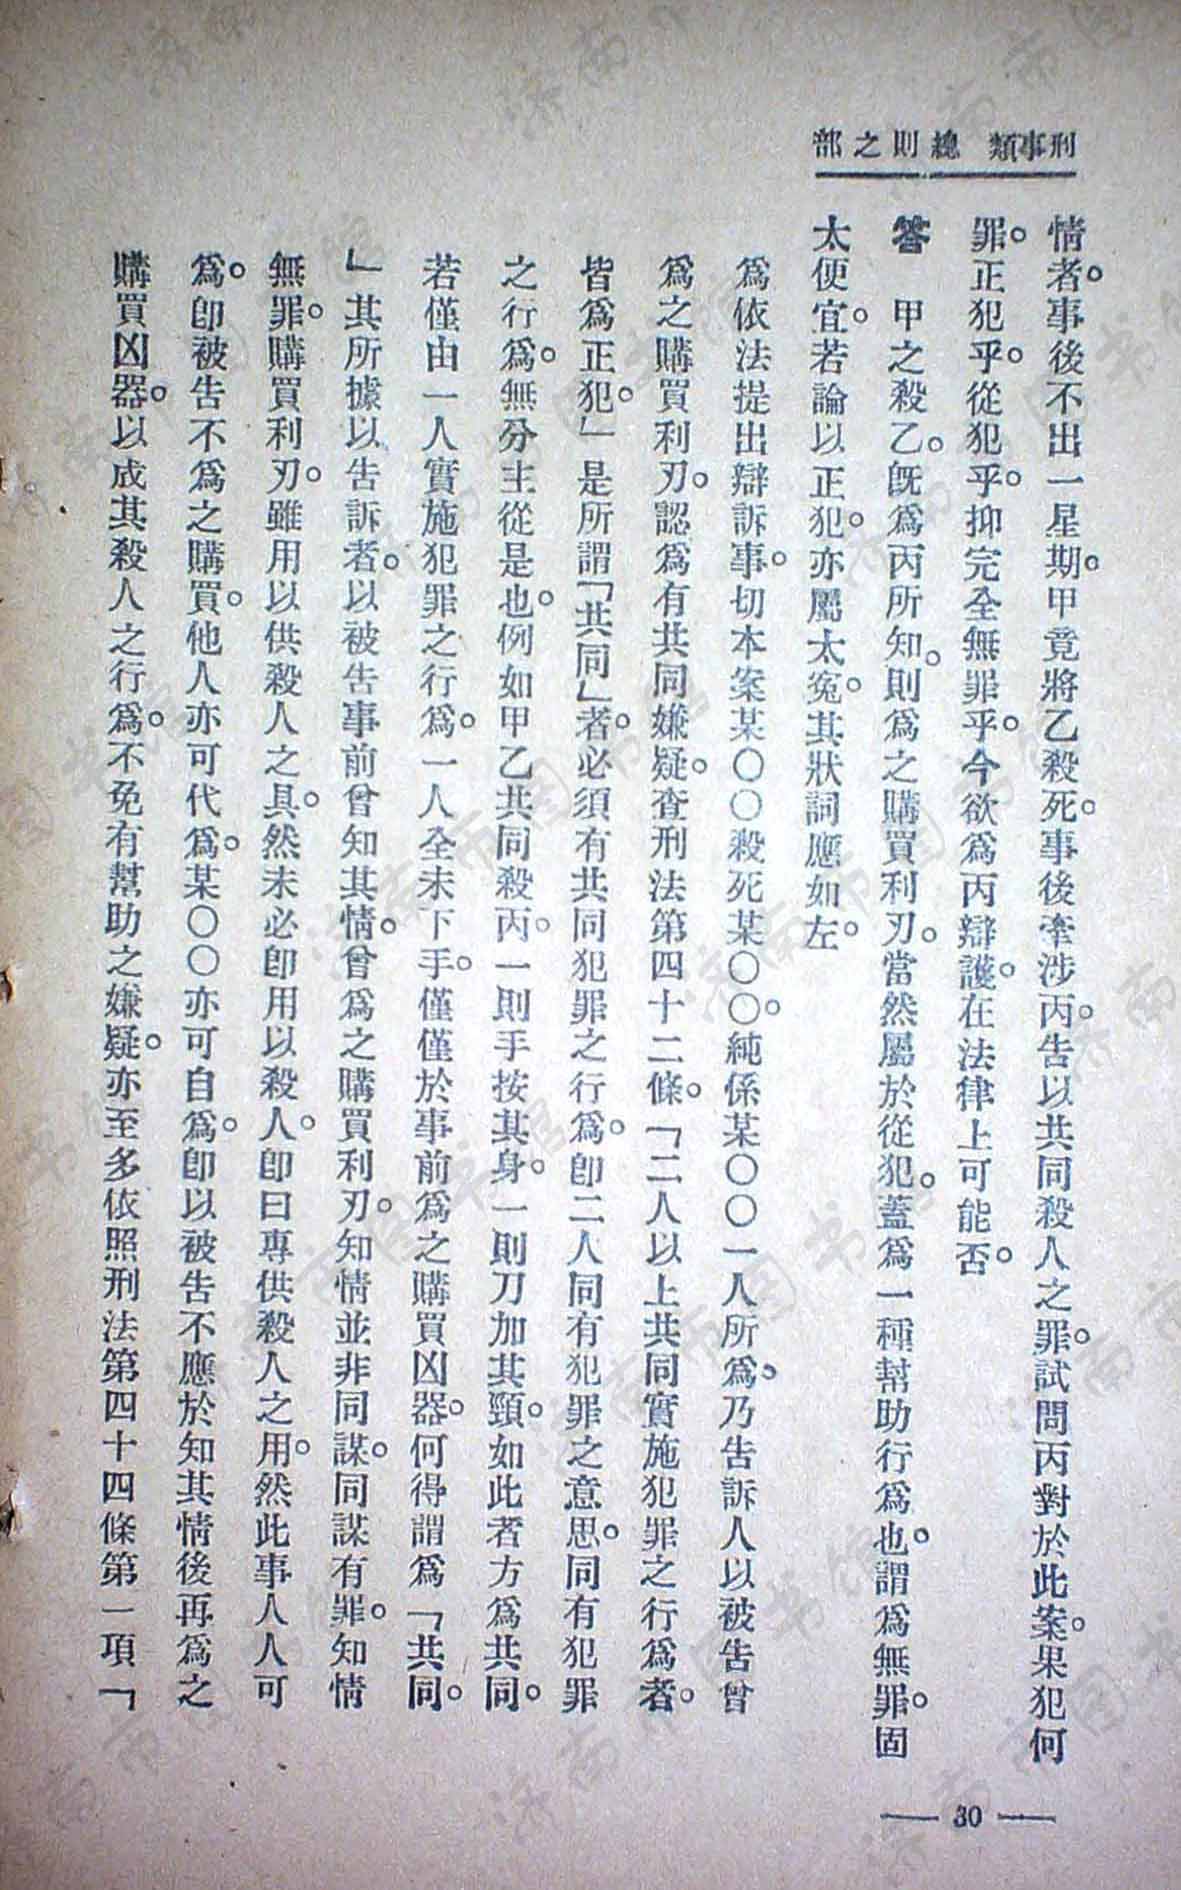 刑事類　總則之部
情者。事後不出一星期。甲竟將乙殺死。事後牽涉丙。告以共同殺人之罪。試問丙對於此案。果犯何
罪。正犯乎。從犯乎。抑完全無罪乎。今欲爲丙辯護。在法律上可能否。
答　甲之殺乙。旣爲丙所知。則爲之購買利刃。當然屬於從犯。蓋爲一種幫助行爲也。謂爲無罪。固
太便宜。若論以正犯。亦屬太寃。其狀詞應如左。
爲依法提出辯訴事。切本案某〇〇殺死某〇〇。純係某〇〇一人所爲。乃告訴人以被告曾
爲之購買利刃。認爲有共同嫌疑。查刑法第四十二條。「二人以上共同實施犯罪之行爲者。
皆爲正犯。」是所謂「共同」者。必須有共同犯罪之行爲。卽二人同有犯罪之意思。同有犯罪
之行爲。無分主從是也。例如甲乙共同殺丙。一則手按其身。一則刀加其頸。如此者方爲共同。
若僅由一人實施犯罪之行爲。一人全未下手。僅僅於事前爲之購買凶器。何得謂爲「共同。
」其所據以告訴者。以被告事前曾知其情。曾爲之購買利刃。知情並非同謀。同謀有罪。知情
無罪。購買利刃。雖用以供殺人之具。然未必卽用以殺人。卽曰專供殺人之用。然此事人人可
爲。卽被告不爲之購買。他人亦可代爲。某〇〇亦可自爲。卽以被告不應於知其情後再爲之
購買凶器。以成其殺人之行爲。不免有幫助之嫌疑。亦至多依照刑法第四十四條第一項「
— 30 —